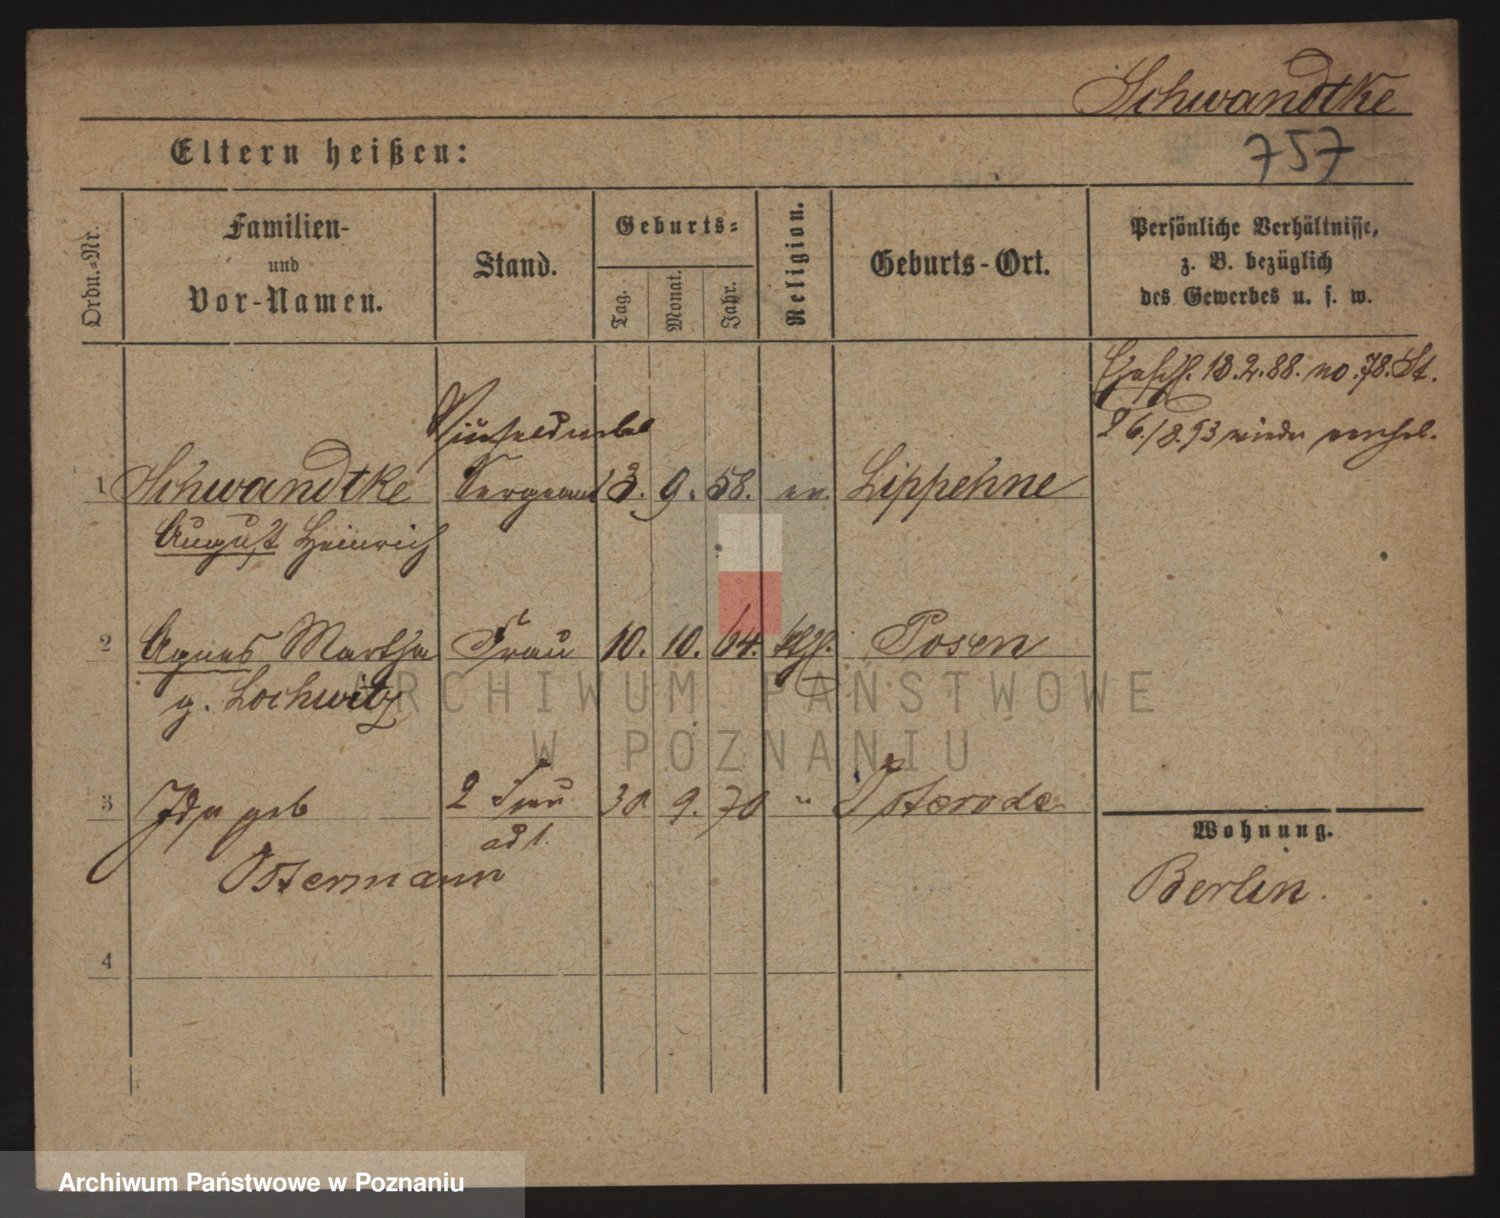 Schwandtke
Eltern heißen:
757
Ordn.-Nr.
Familien-
und
Vor-Namen.
Stand.
Geburts-
Tag.
Monat.
Jahr.
Religion.
Geburts-Ort.
Persönliche Verhältnisse,
z. B. bezüglich
des Gewerbes u. s. w.
Eheschl. 18.2.88. no. 78. St.
26./8.93 wieder verehel.
Vizefeldwebel
1 Schwandtke Sergeant 13. 9. 58. ev. Lippehne
August Heinrich
2 Agnes Martha Frau 10. 10. 64. kth. Posen
g. Lochwitz
3 Ida geb 2 Frau 30 9. 70 " Osterode
ad 1.
Ostermann
4
Wohnung.
Berlin.
ARCHIWUM PAŃSTWOWE
W POZNANIU
Archiwum Państwowe w Poznaniu